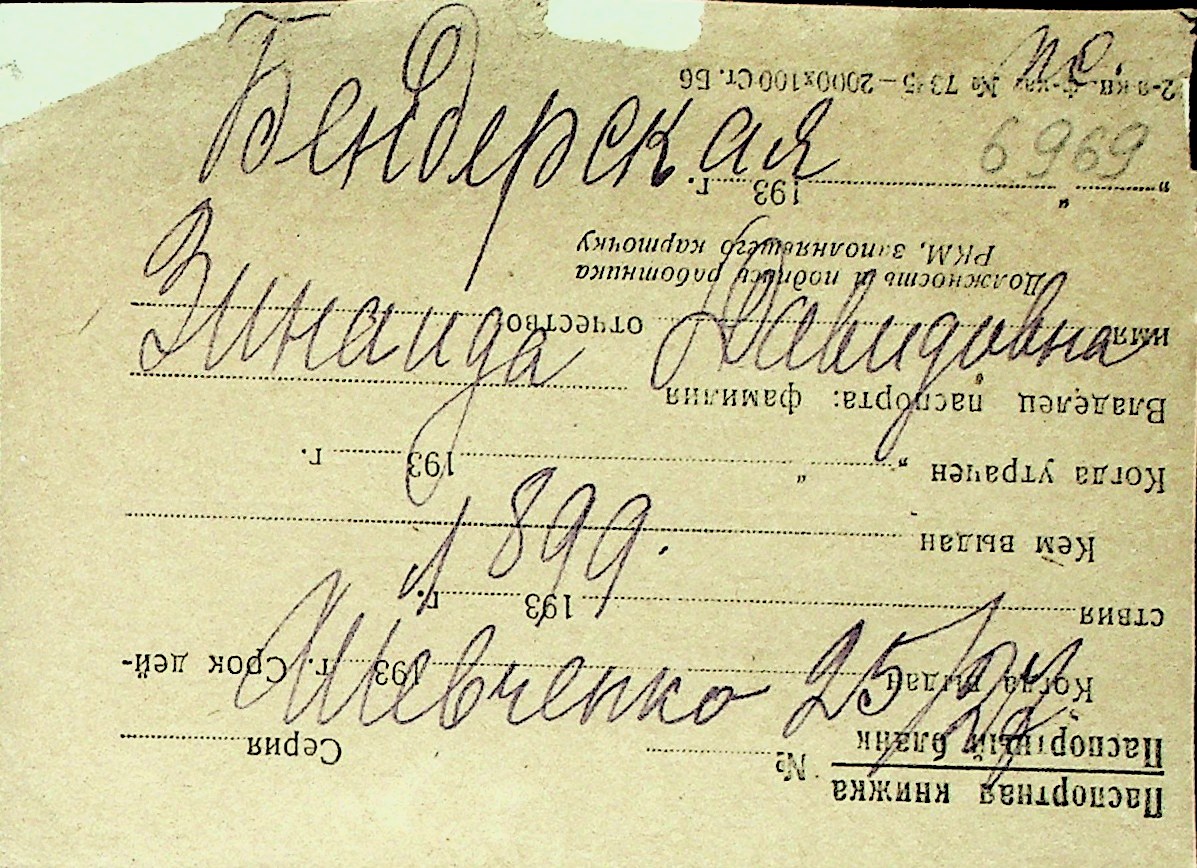 Бендерская
6969
Зинаида Давидовна
1899.
Шевченко 25/
Паспортная книжка
Паспортный бланк
№ Серия
Когда выдан 193 г. Срок дей-
ствия 193 г.
Кем выдан
Когда утрачен „ “ 193 г.
Владелец паспорта: фамилия
имя отчество
Должность и подпись работника
РКМ, заполнявшего карточку
„ “ 193 г.
2-я кв. ф-ка, № 7345 — 2000х100 Ст. Б6